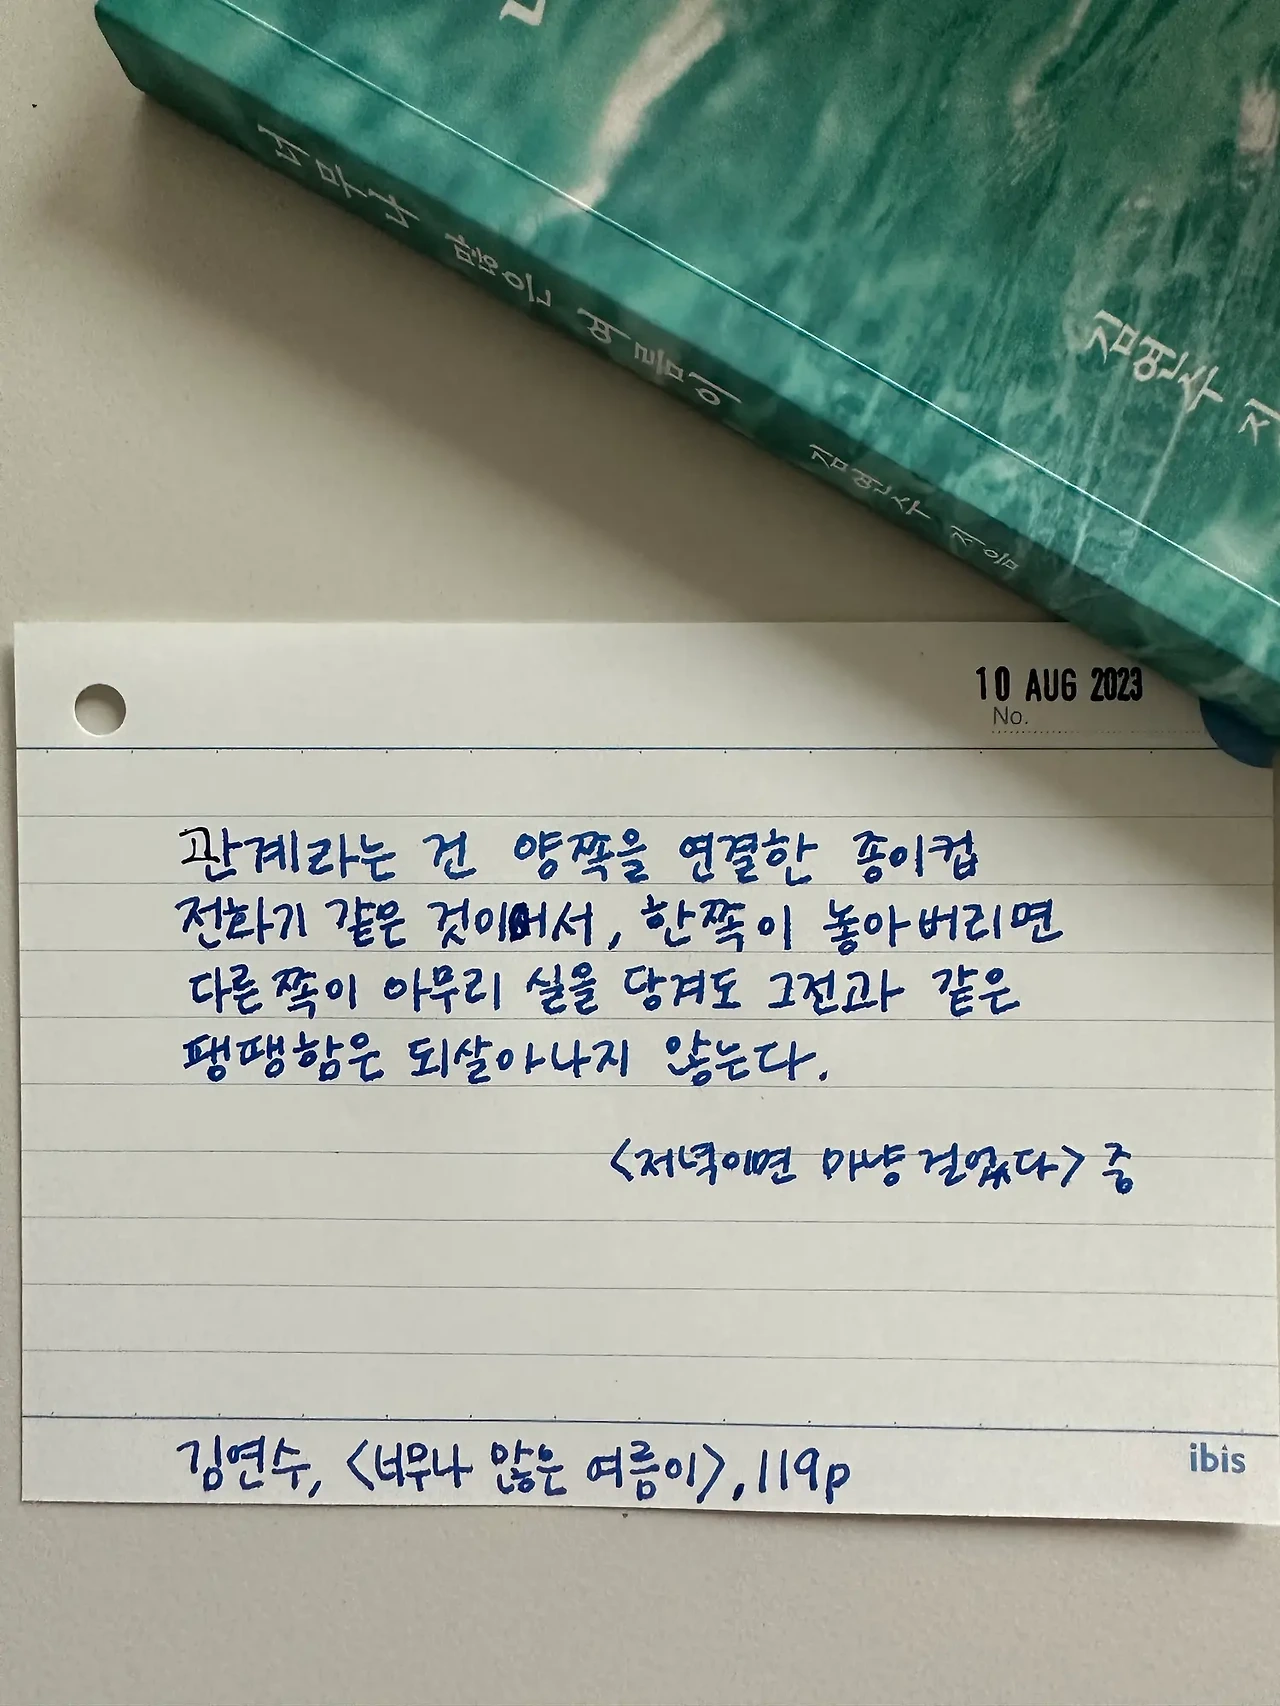 너무나 많은 여름이
김연수 지음
김연수 지
10 AUG 2023
No.
관계라는 건 양쪽을 연결한 종이컵
전화기 같은 것이어서, 한쪽이 놓아버리면
다른쪽이 아무리 실을 당겨도 그전과 같은
팽팽함은 되살아나지 않는다.
<저녁이면 마냥 걸었다> 중
김연수, <너무나 많은 여름이>, 119p
ibis